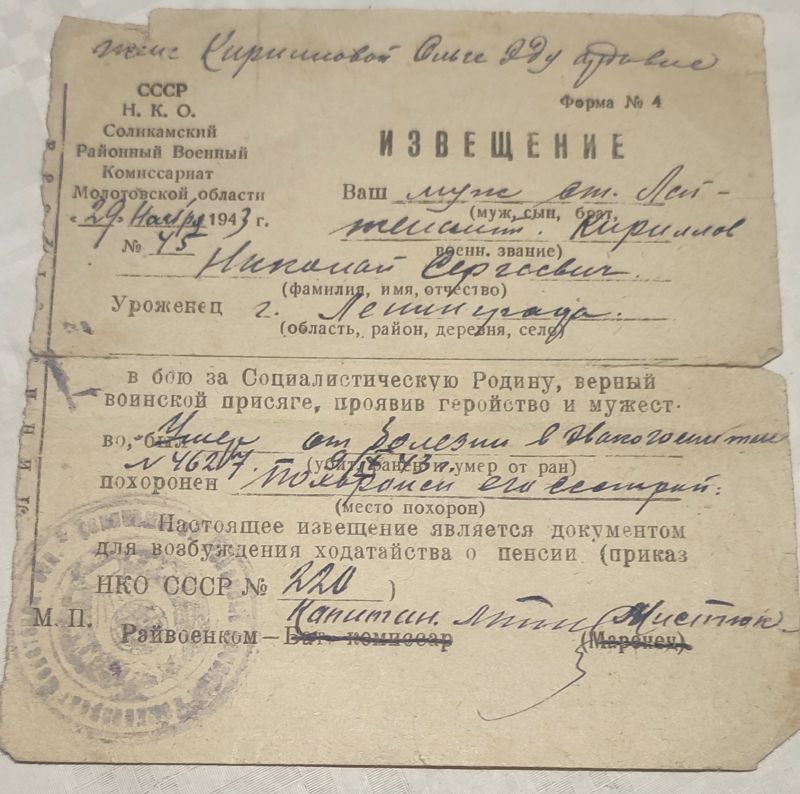 жене Кирилловой Ольге Эдуардовне
СССР
Н. К. О.
Соликамский
Районный Военный
Комиссариат
Молотовской области
"29" Ноября 1943 г.
№ 45
Форма № 4
ИЗВЕЩЕНИЕ
Ваш муж ст. Лей-
(муж, сын, брат,
тенант. Кириллов
военн. звание)
Николай Сергеевич.
(фамилия, имя, отчество)
Уроженец г. Ленинграда.
(область, район, деревня, село)
в бою за Социалистическую Родину, верный
воинской присяге, проявив геройство и мужест-
во, был Умер от болезни в Эвакогоспитале
№ 4627. 43 г.
(убит, ранен и умер от ран)
похоронен Похоронен его сестрой.
(место похорон)
Настоящее извещение является документом
для возбуждения ходатайства о пенсии (приказ
НКО СССР № 220 )
М. П.
Капитан.
Райвоенком— Бат. комиссар (Маренец)